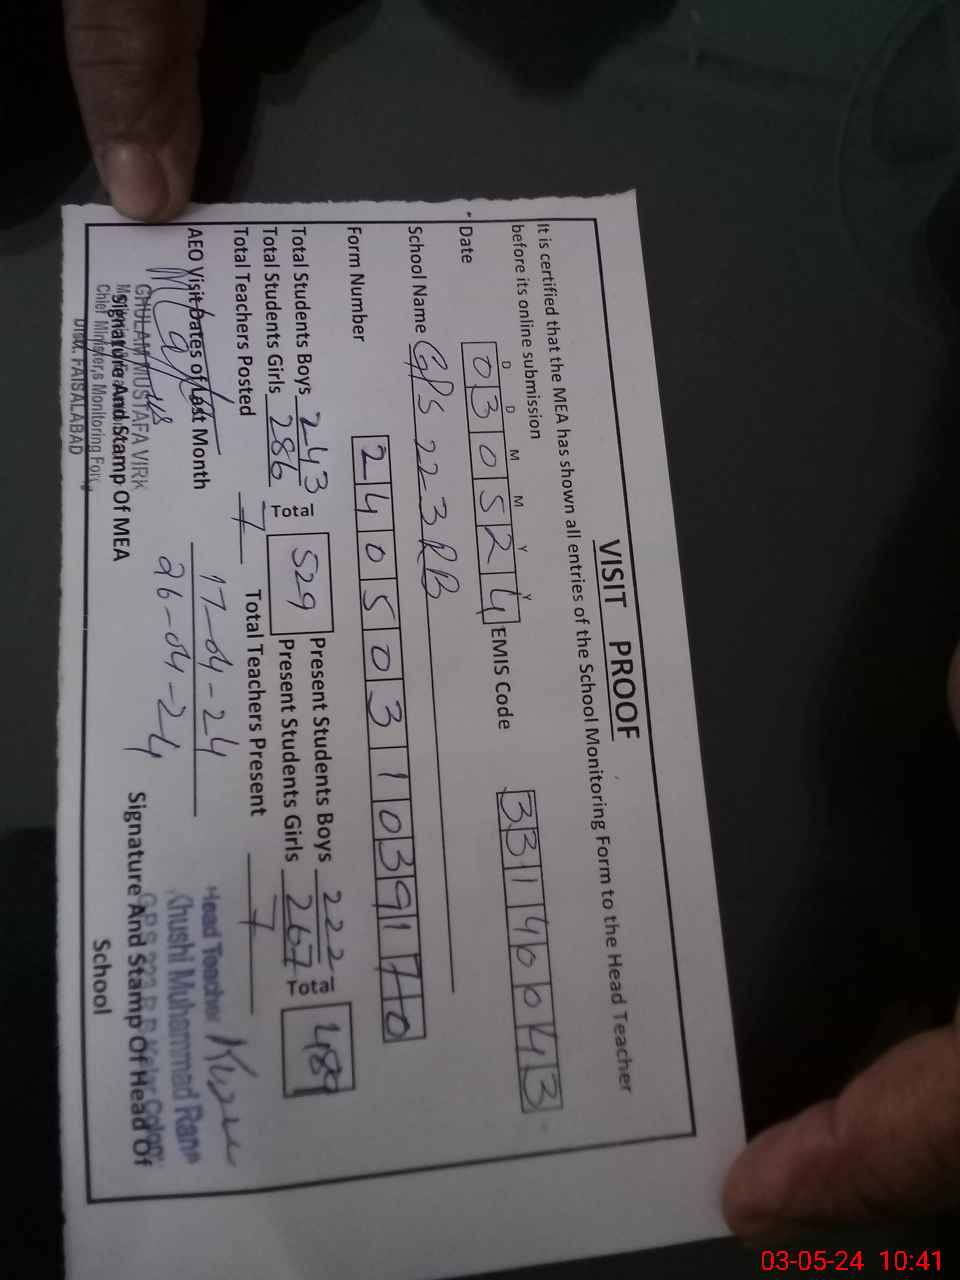 VISIT PROOF
It is certified that the MEA has shown all entries of the School Monitoring Form to the Head Teacher
before its online submission
D D M M Y Y
Date 030524 EMIS Code 33140043
School Name GPS 223 RB
Form Number 240503103917
Total Students Boys 243 Total 529 Present Students Boys 222 Total 489
Total Students Girls 286 Present Students Girls 267
Total Teachers Posted 7 Total Teachers Present 7
AEO Visit Dates of Last Month 17-04-24
26-04-24
GHULAM MUSTAFA VIRK
Chief Minister,s Monitoring Force
Distt. FAISALABAD
Signature And Stamp Of MEA
Head Teacher
Khushi Muhammad Rana
Signature And Stamp Of Head Of
School
03-05-24 10:41